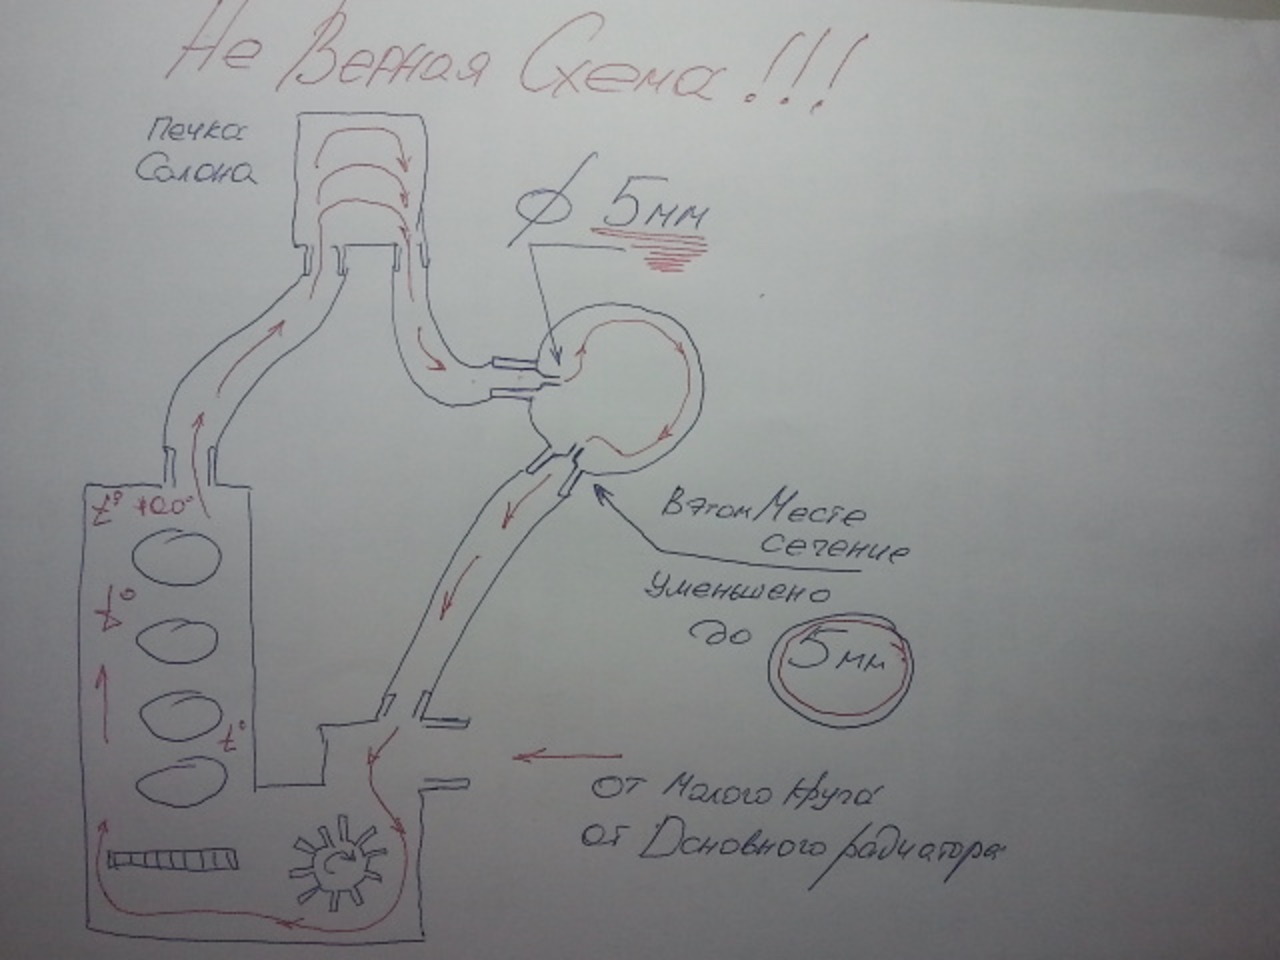 Не Верная Схема!!!
Печка
Салона
⌀ 5мм
t° +00°
t°
t°
В этом Месте
сечение
уменьшено
до 5мм
от Малого круга
от Основного радиатора